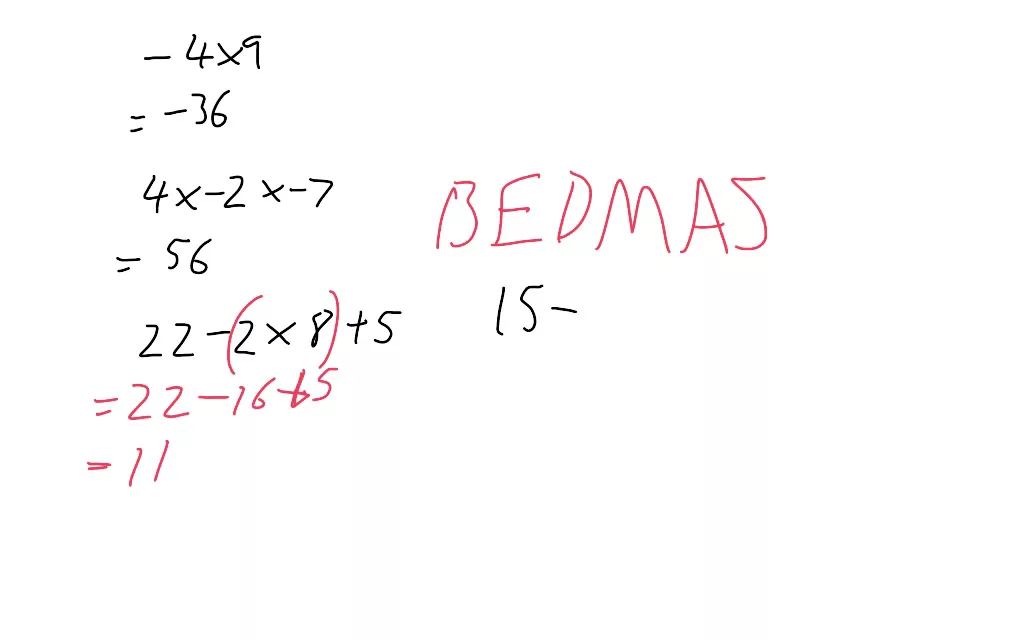 - 4×9
= -36
4×-2×-7
= 56
22-(2×8)+5
= 22-16+5
= 11
BEDMAS
15-